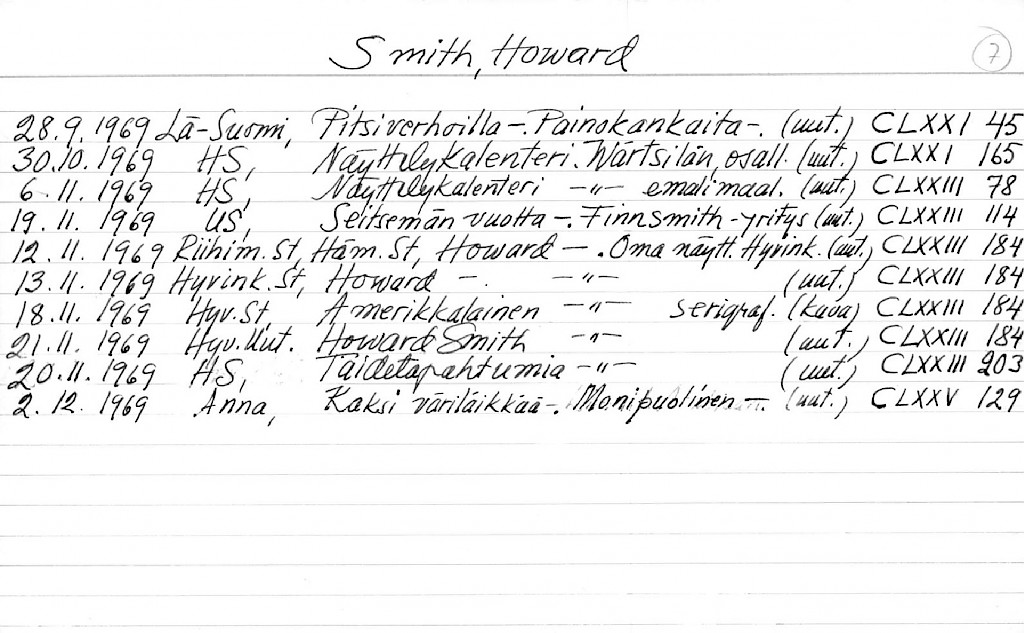 Smith, Howard
7
28.9.1969 Lä-Suomi, Pitsiverhoilla -. Painokankaita -. (uut.) CLXXI 45
30.10.1969 HS, Näyttelykalenteri. Wärtsilän, osall. (uut.) CLXXI 165
6.11.1969 HS, Näyttelykalenteri -"- emalimaal. (uut.) CLXXIII 78
19.11.1969 US, Seitsemän vuotta -. Finnsmith-yritys (uut.) CLXXIII 114
12.11.1969 Riihim.St, Häm.St, Howard -. Oma näytt. Hyvink. (uut.) CLXXIII 184
13.11.1969 Hyvink.St, Howard - -"- (uut.) CLXXIII 184
18.11.1969 Hyv.St, Amerikkalainen -"- serigraf. (kuva) CLXXIII 184
21.11.1969 Hyv.Uut. Howard Smith -"- (uut.) CLXXIII 184
20.11.1969 HS, Taidetapahtumia -"- (uut.) CLXXIII 203
2.12.1969 Anna, Kaksi väriläikkää -. Monipuolinen -. (uut.) CLXXV 129